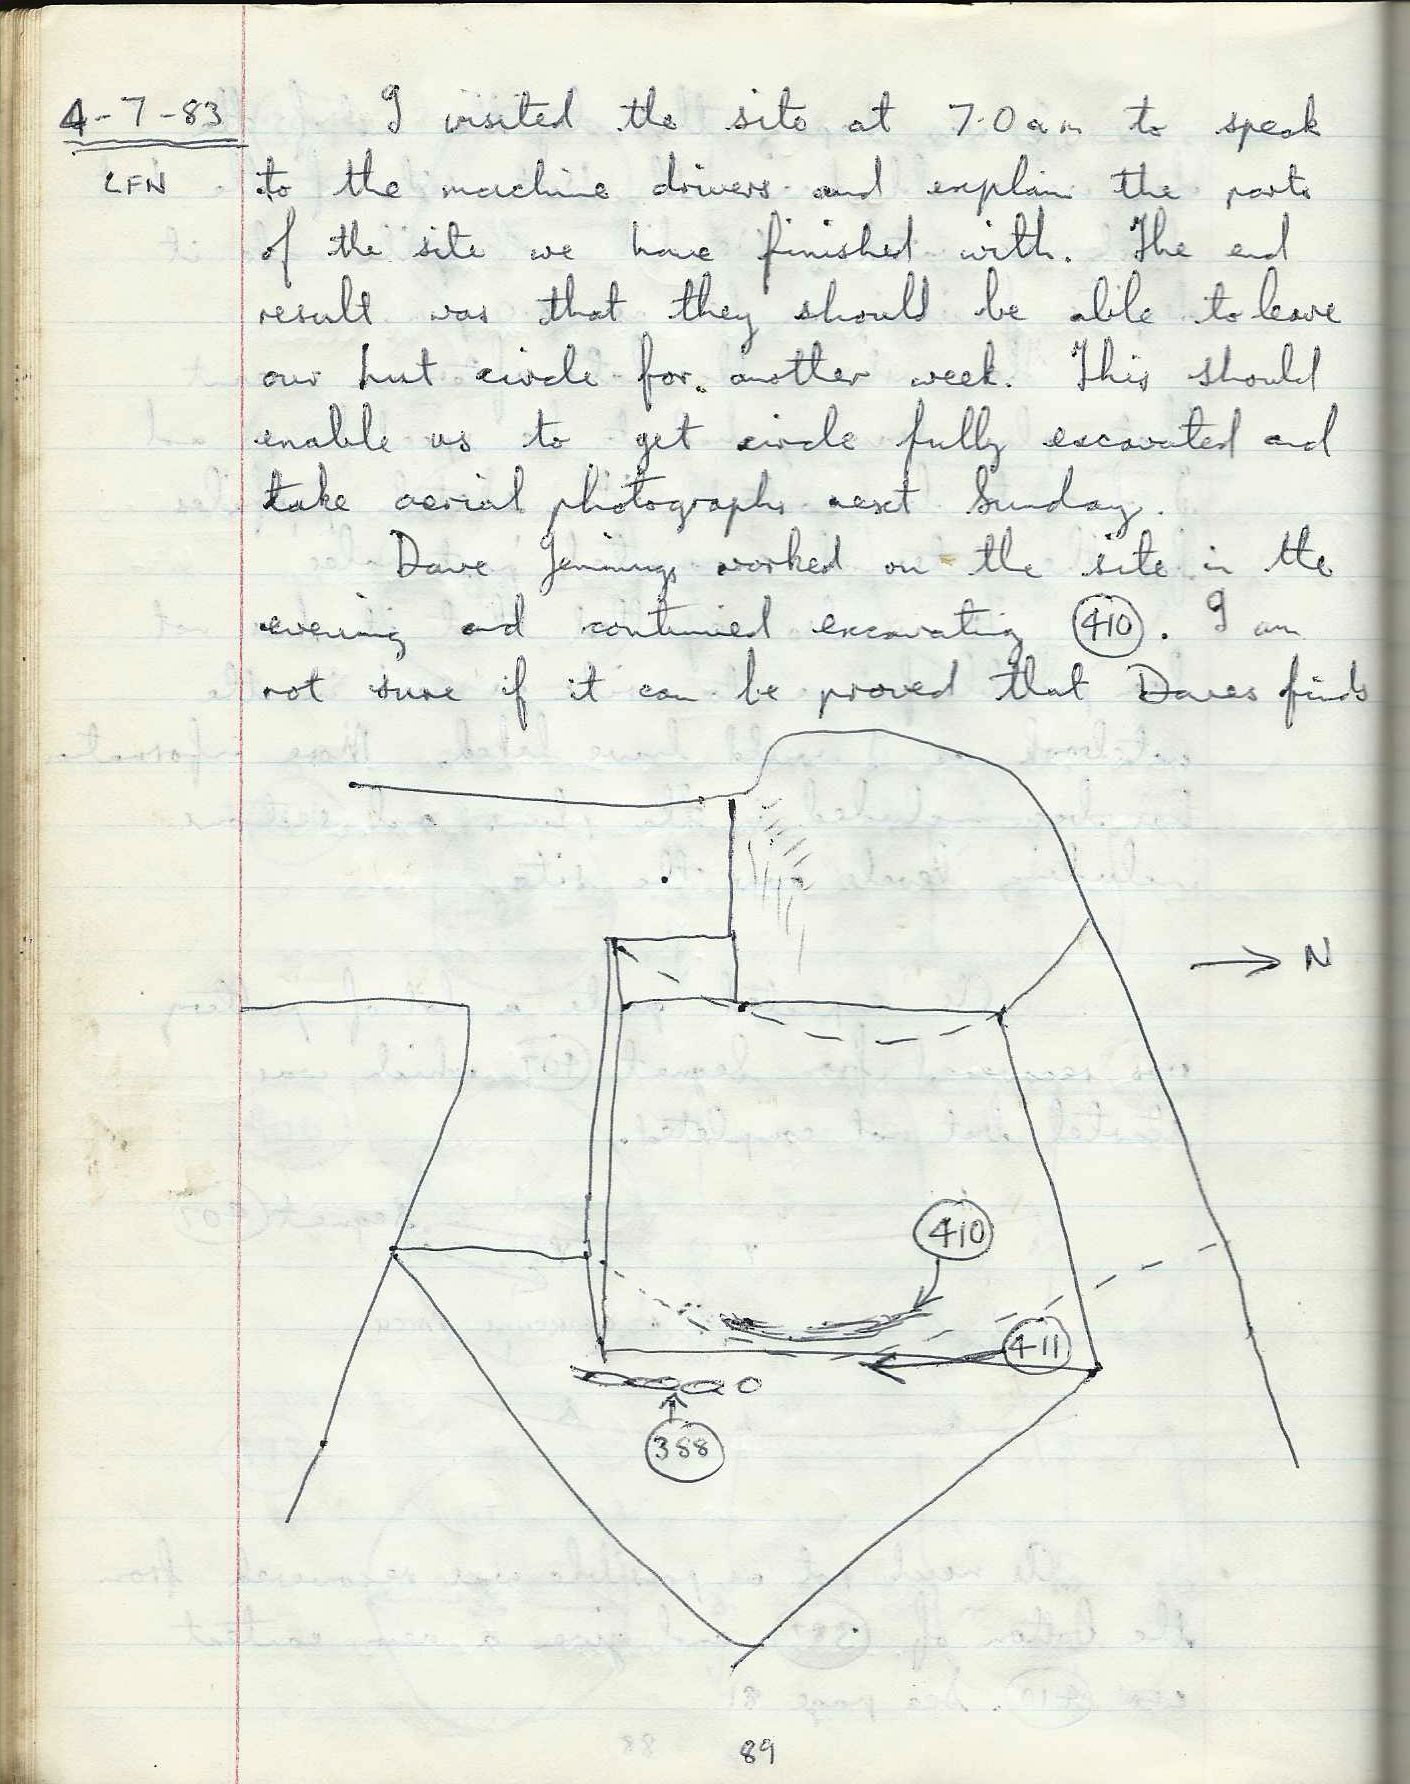 4-7-83 I visited the site at 7.0am to speak
LFN to the machine drivers and explain the parts
of the site we have finished with. The end
result was that they should be able to leave
our hut circle for another week. This should
enable us to get circle fully excavated and
take aerial photographs next Sunday.
Dave Jennings worked on the site in the
evening and continued excavating 410. I am
not sure if it can be proved that Daves finds
N
410
411
388
89